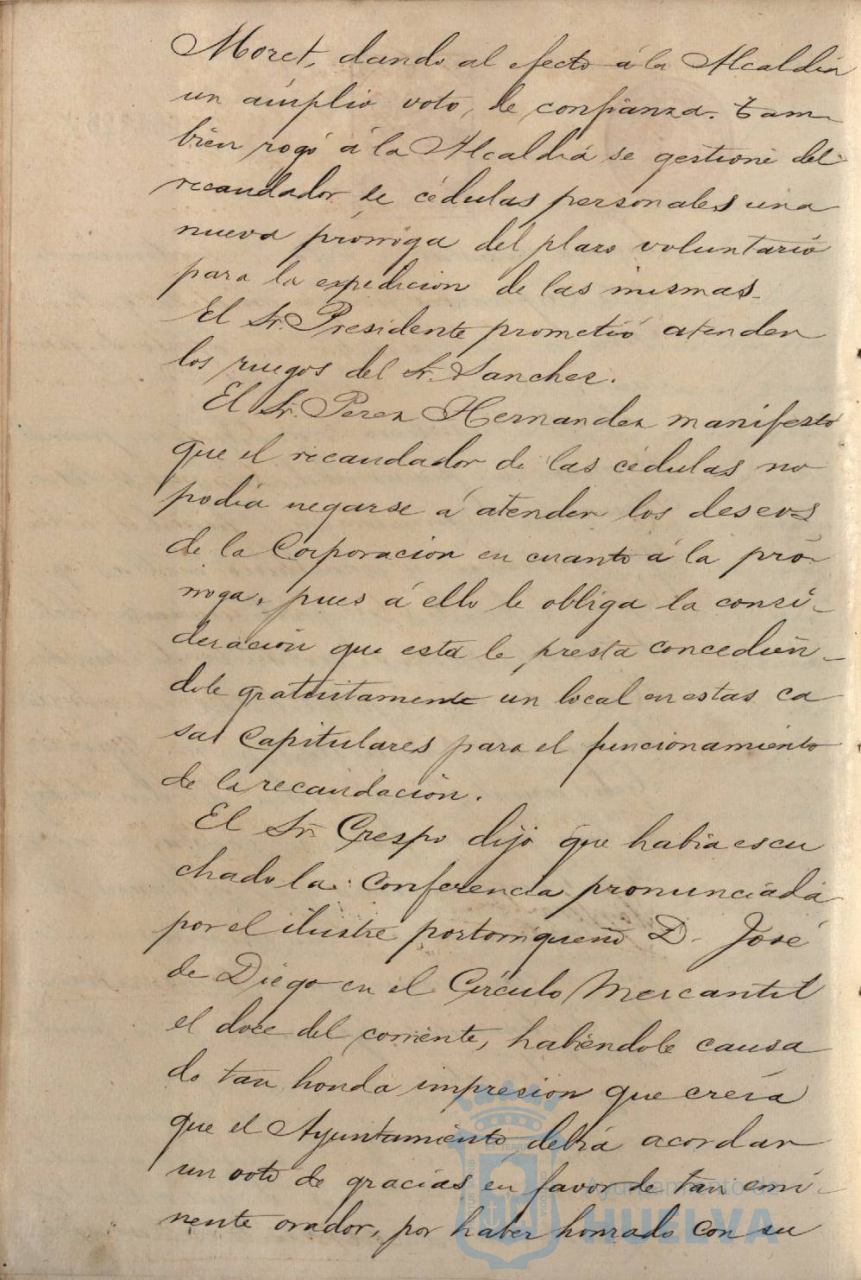 Moret, dando al efecto á la Alcaldia
un ámplio voto, de confianza. Tam-
bien rogó á la Alcaldia se gestione del
recaudador de cédulas personales una
nueva prórroga del plazo voluntario
para la expedicion de las mismas.
El Sr. Presidente prometió atender
los ruegos del Sr. Sanchez.
El Sr. Perez Hernandez manifestó
que el recaudador de las cédulas no
podia negarse á atender los deseos
de la Corporacion en cuanto á la pró-
rroga, pues á ello le obliga la consi-
deración que esta le presta concedién-
dole gratuitamente un local en estas ca
sas Capitulares para el funcionamiento
de la recaudación.
El Sr. Crespo dijo que habia escu
chado la Conferencia pronunciada
por el ilustre portorriqueño D. José
de Diego en el Círculo Mercantil
el doce del corriente, habiéndole causa
do tan honda impresion que creia
que el Ayuntamiento debia acordar
un voto de gracias en favor de tan emi-
nente orador, por haber honrado con su
Ayuntamiento de
HUELVA